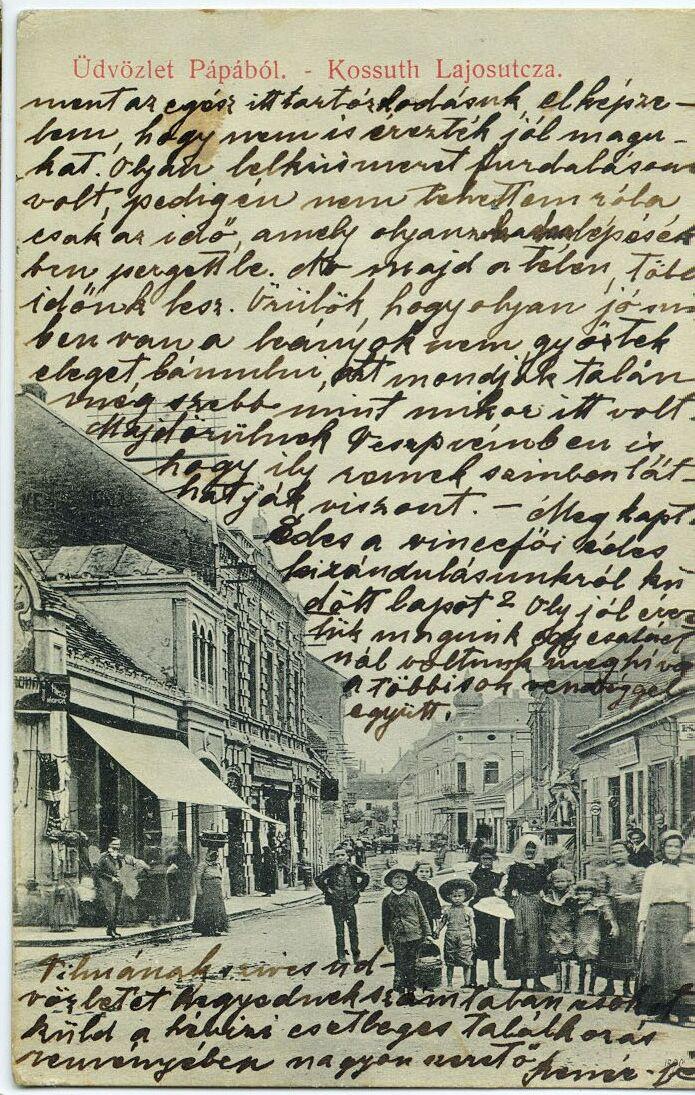 Üdvözlet Pápából. - Kossuth Lajosutcza.
ment az egész itt tartózkodásuk, elképze-
lem, hogy nem is érezték jól magu-
kat. Olyan lelkiismeret furdalásom
volt, pedig én nem tehettem róla
csak az idő, amely olyan
ben pergett le. No majd a télen, több
időnk lesz. Örülök, hogy olyan jó
ben van a leányok nem győztek
eleget bámulni, azt mondják talán
még szebb mint mikor itt volt.
Majd örülnek Veszprémben is
hogy ily remek szinben lát-
hatják viszont. - Meg kapt
Édes a vinczefői édes
kirándulásunkról kü
dött lapot? Oly jól érez
tük magunk egy
nál voltunk meghiva
a többi sok vendéggel
együtt.
Vilmának szives üd-
vözletet Kegyednek számtalan csókot
küld a esetleges találkozás
reményében nagyon szerető
Renée